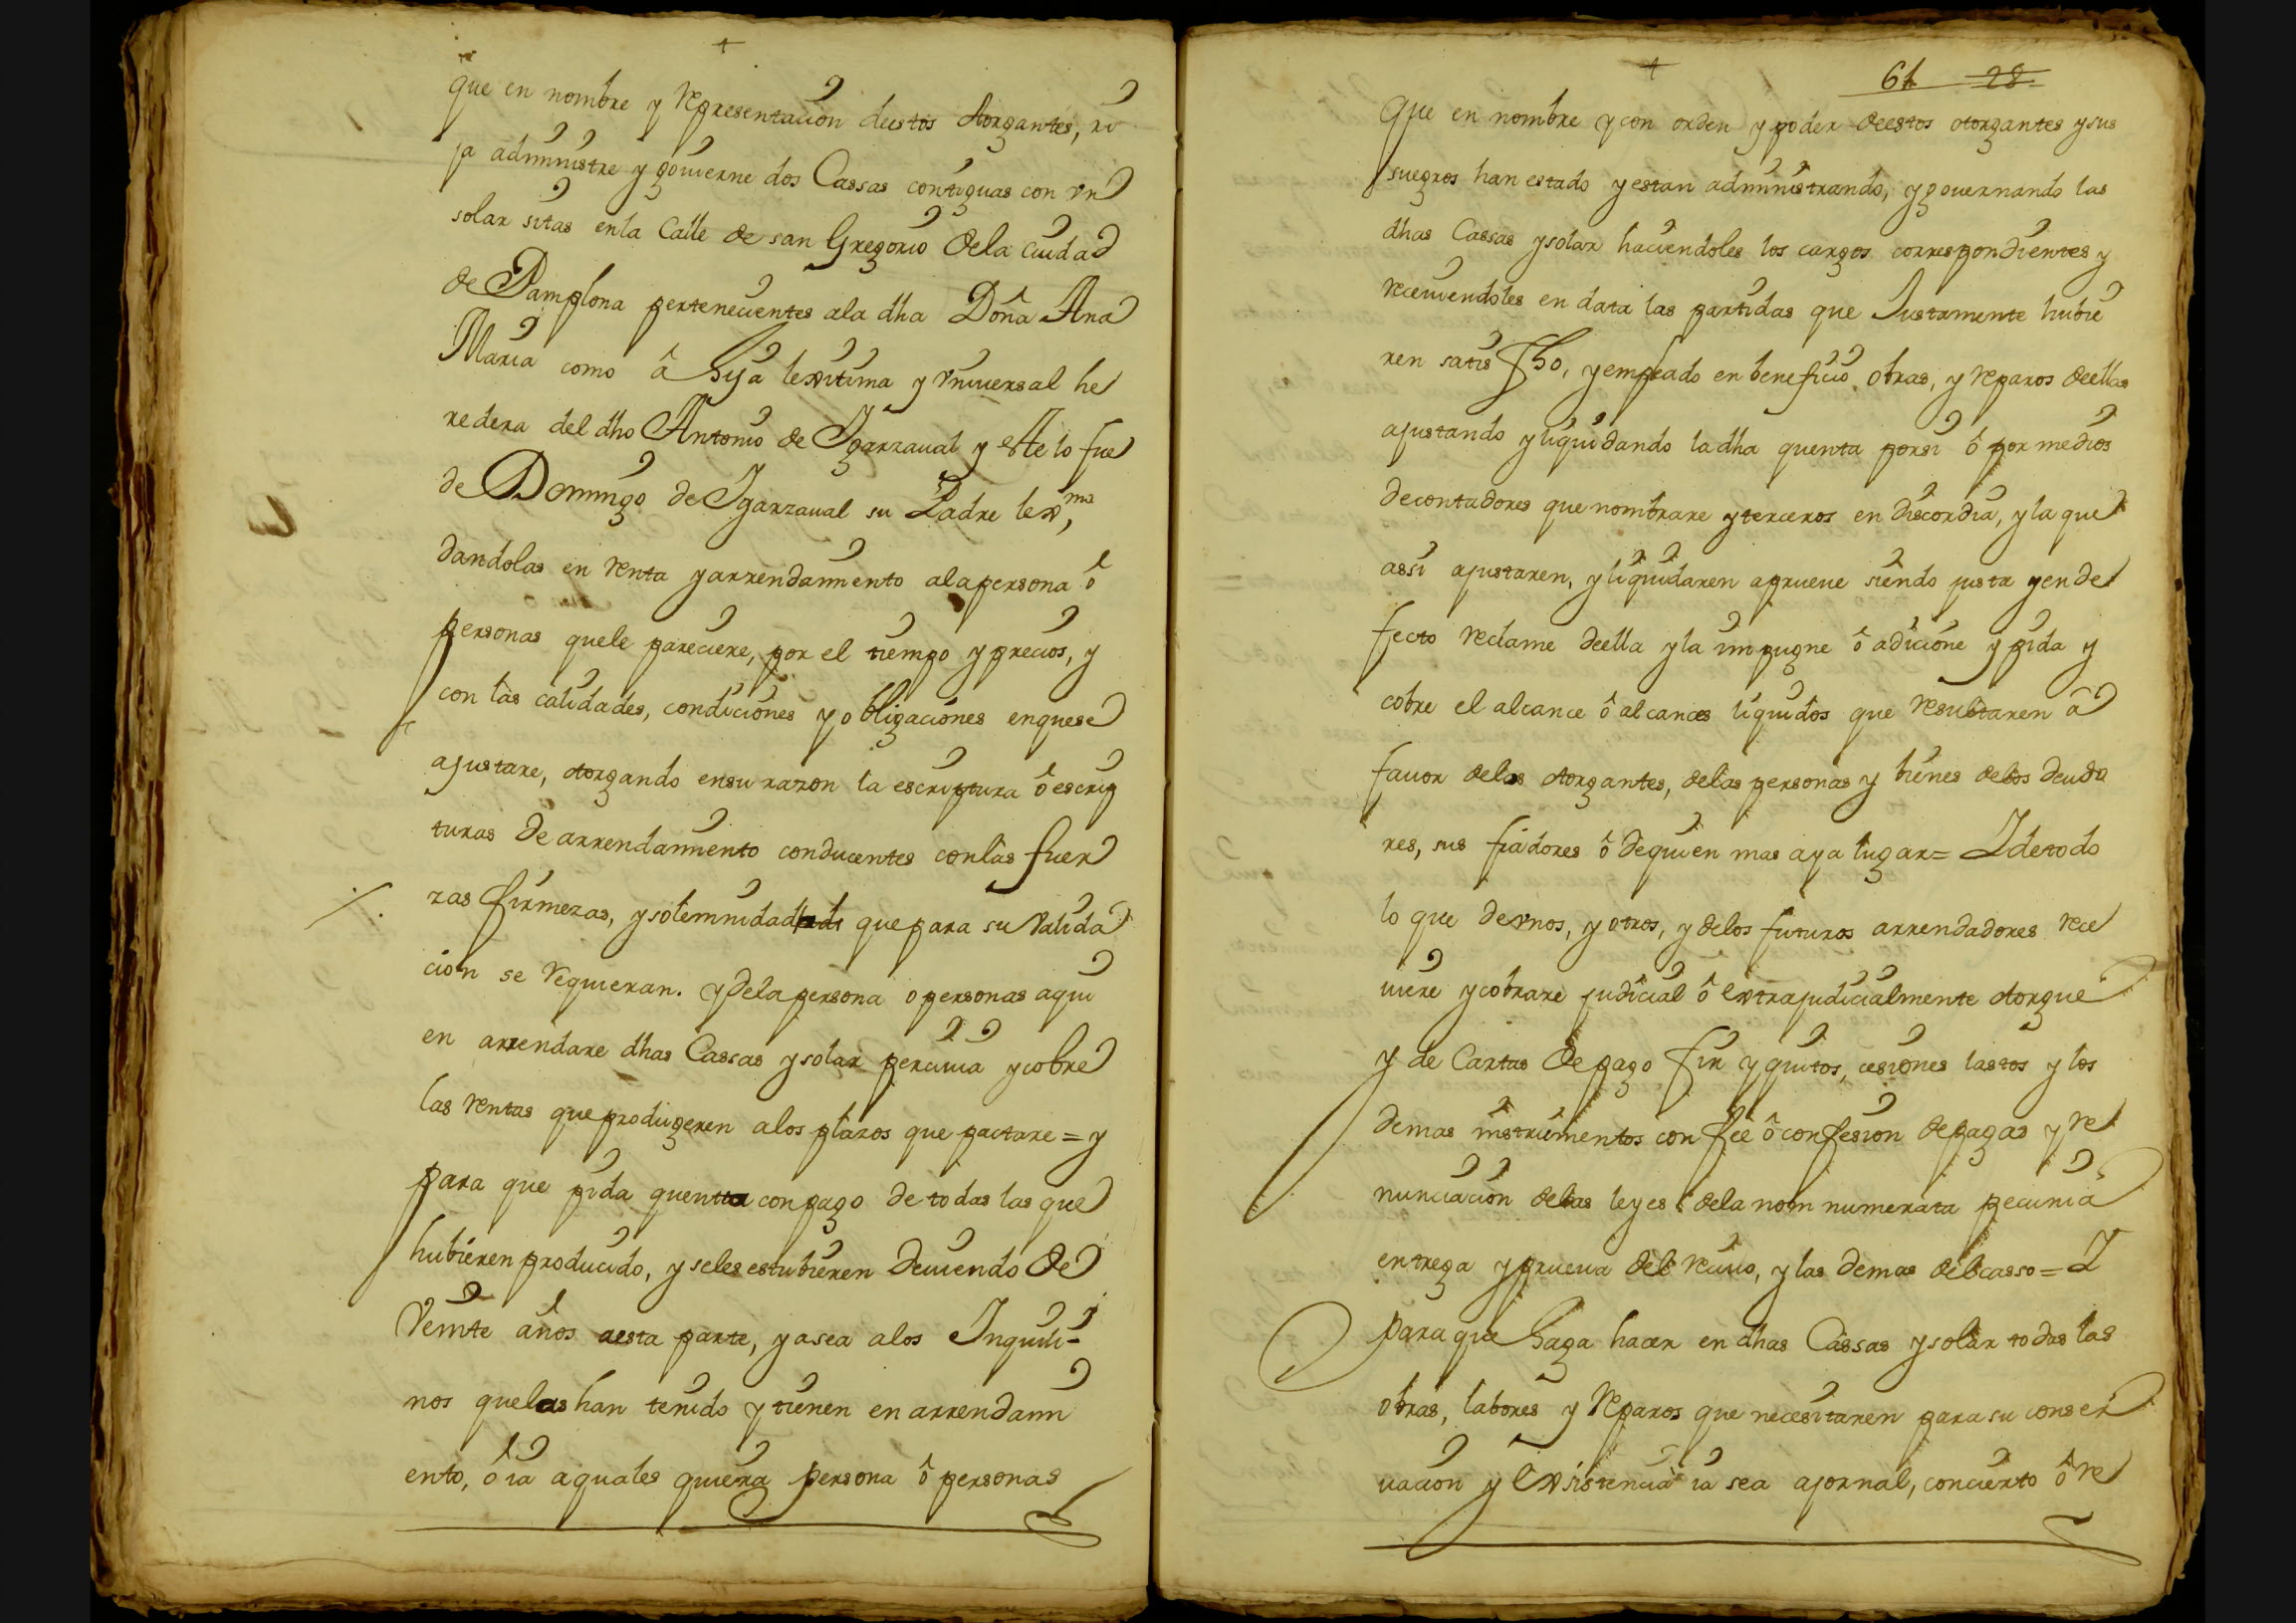 +
que en nombre y representacion deestos otorgantes, ri
ja administre y gouierne dos Cassas contiguas con vn
solar sitas enla Calle de san Gregorio dela Ciudad
de Pamplona pertenecientes ala dha Doña Ana
Maria como â hija lexitima y vniuersal he
redera del dho Antonio de Igarzaual y este lo fue
de Domingo de Igarzaual su Padre lexma,
dandolas en renta y arrendamiento ala persona ô
personas quele pareciere, por el tiempo y precios, y
con las calidades, condiciones y obligaciones enquese
ajustare, otorgando ensu razon la escriptura ô escrip
turas de arrendamiento conducentes conlas fuer
zas firmezas, y solemnidad que para su valida
cion se requieran. y dela persona o personas aqui
en arrendare dhas Cassas y solar perciua y cobre
las rentas que produgeren alos plazos que pactare = y
para que pida quenta con pago de todas las que
hubieren producido, y seles estubieren deuiendo de
veinte años aesta parte, ya sea alos Inquili-
nos quelas han tenido y tienen en arrendami
ento, ô ia aquales quiera persona ô personas
+
61 28
que en nombre y con orden y poder deestos otorgantes y sus
suegros han estado y estan administrando, y gouernando las
dhas Cassas y solar haciendoles los cargos correspondientes y
reciuiendoles en data las partidas que Justamente hubie
ren satis fho, y empleado en beneficio, obras, y reparos deellas
ajustando y liquidando la dha quenta porsi ô por medios
decontadores que nombrare y terceros en discordia, y la que
assi ajustaren, y liquidaren aprueue siendo justa y en de
fecto reclame deella y la impugne ô adicione y pida y
cobre el alcance ô alcances liquidos que resultaren â
fauor delos otorgantes, delas personas y bienes delos deudo
res, sus fiadores ô dequien mas aya lugar = I detodo
lo que devnos, y otros, y delos futuros arrendadores rece
uiere y cobrare judicial ô extrajudicialmente otorgue
y de Cartas de pago fin y quitos, cesiones lastos y los
demas instrumentos con fee ô confesion depagas y re
nunciacion delas leyes dela nom numerata pecunia
entrega y prueua del reciuo, y las demas del casso = I
para que haga hacer en dhas Cassas y solar todas las
obras, labores y reparos que necesitaren para su conser
uacion y existencia ia sea ajornal, concierto ô re